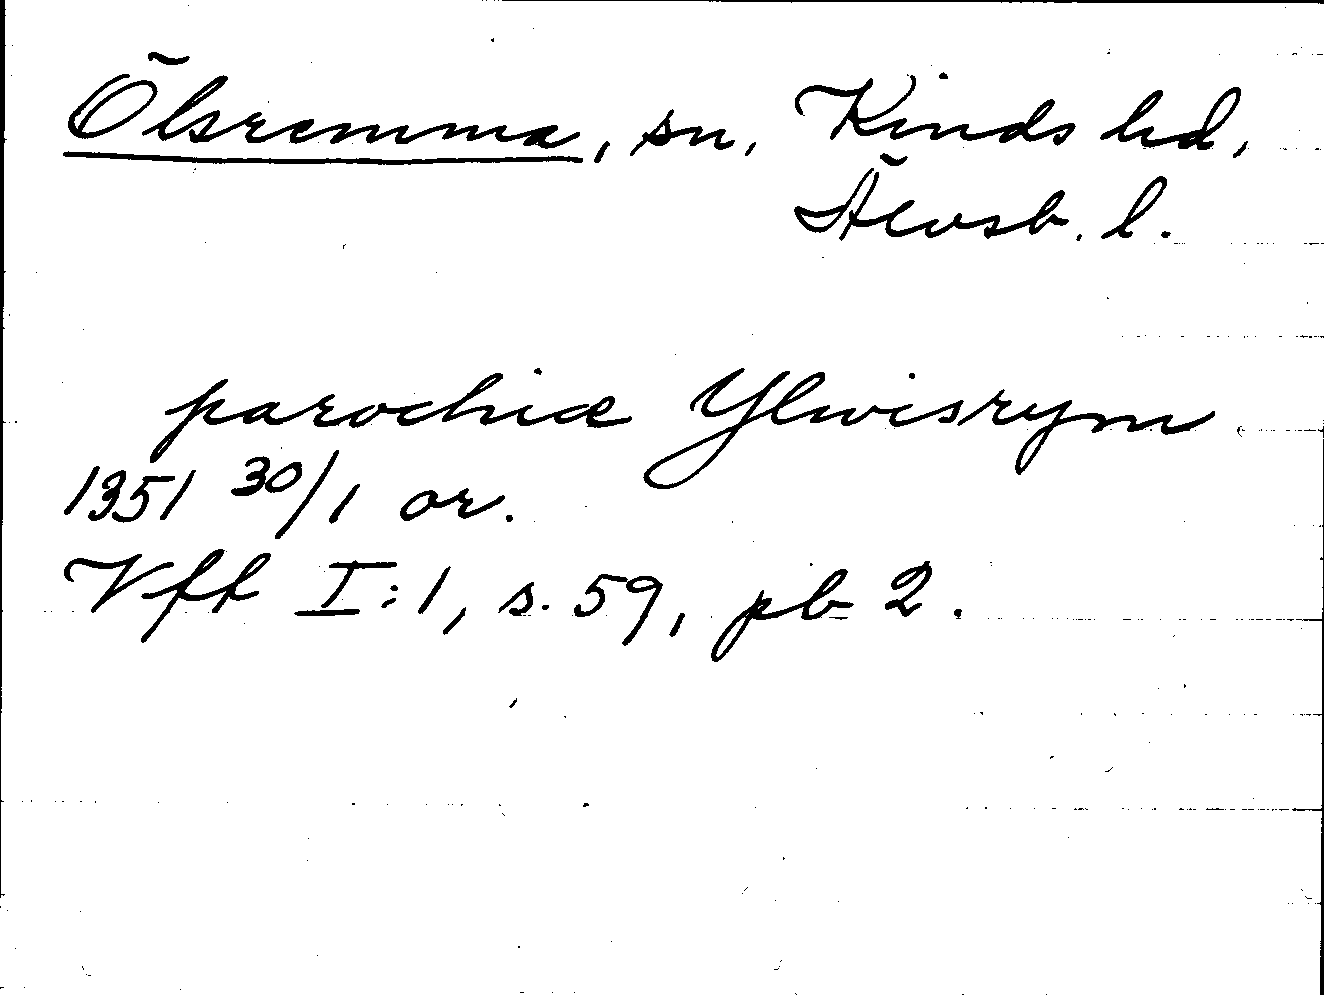 Ölsremma, sn, Kinds hd,
Älvsb. l.
parochiæ Ylwisrym
1351 30/1 or.
Vff I:1, s. 59, pb 2.